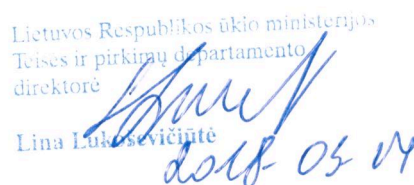 Lietuvos Respublikos ūkio ministerijos
Teisės ir pirkimų departamento
direktorė
Lina Lukoševičiūtė
2018-05-14